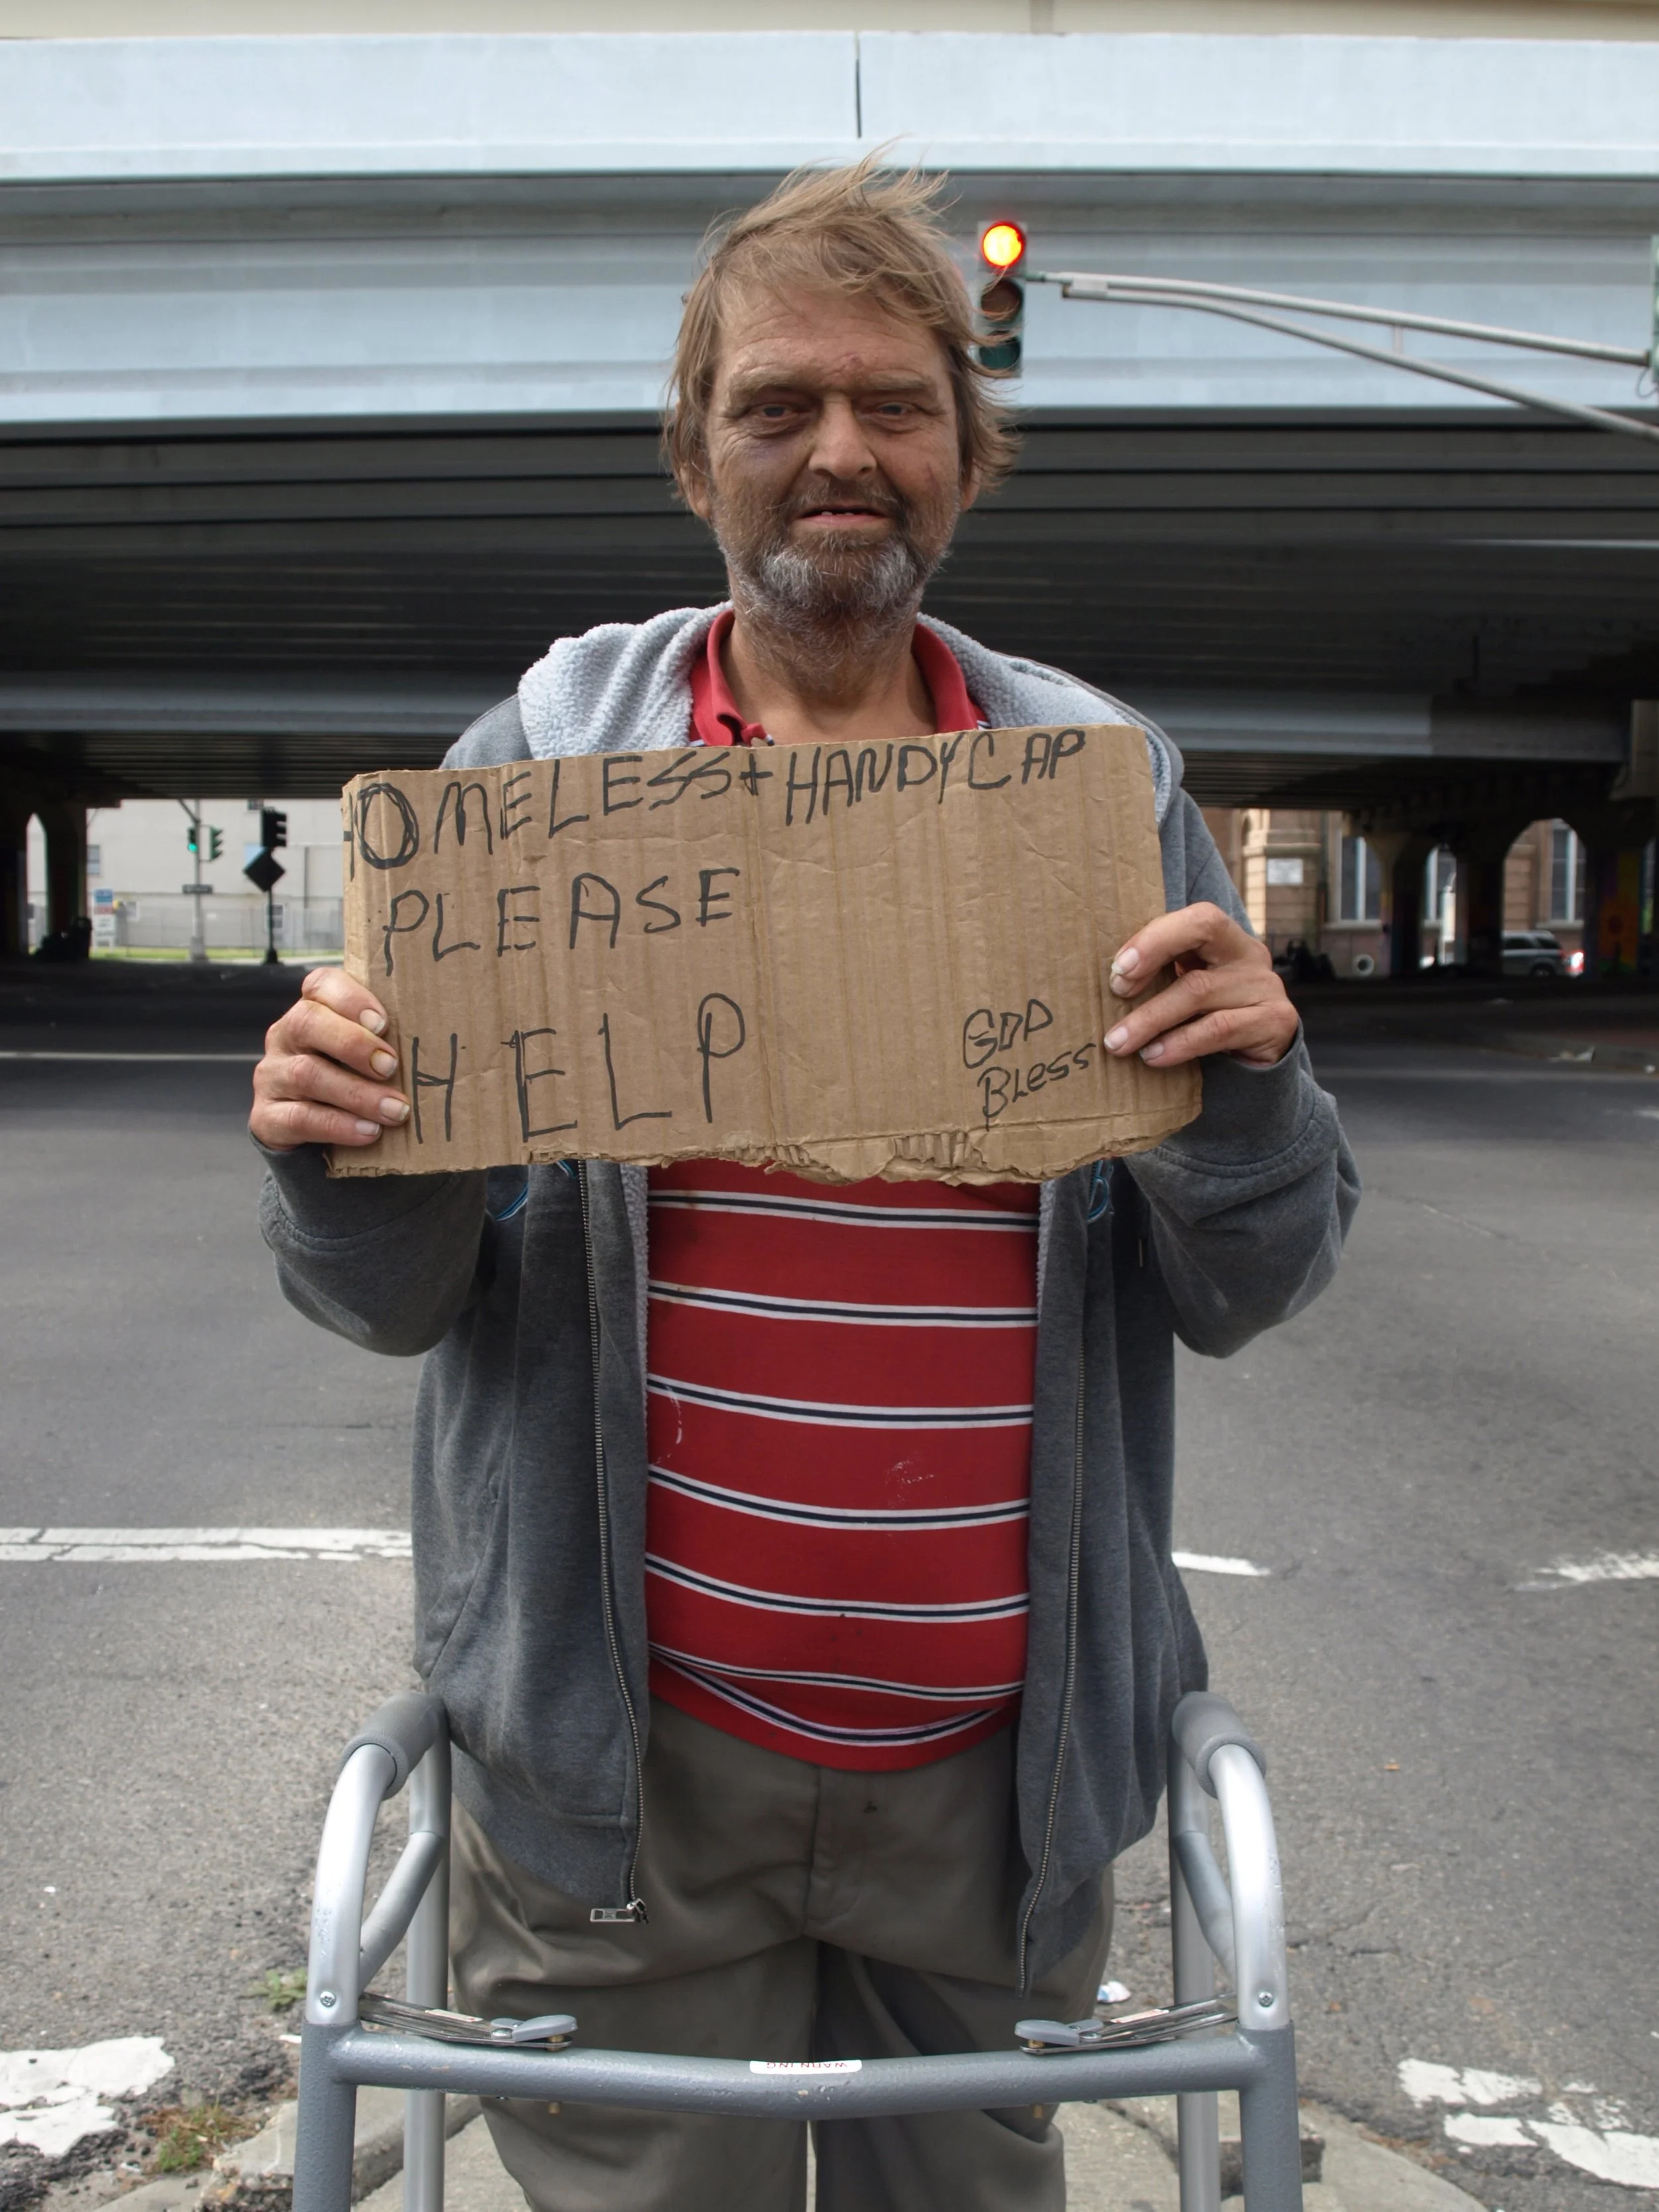 HOMELESS + HANDYCAP
PLEASE
HELP
GOD
BLESS
WARNING